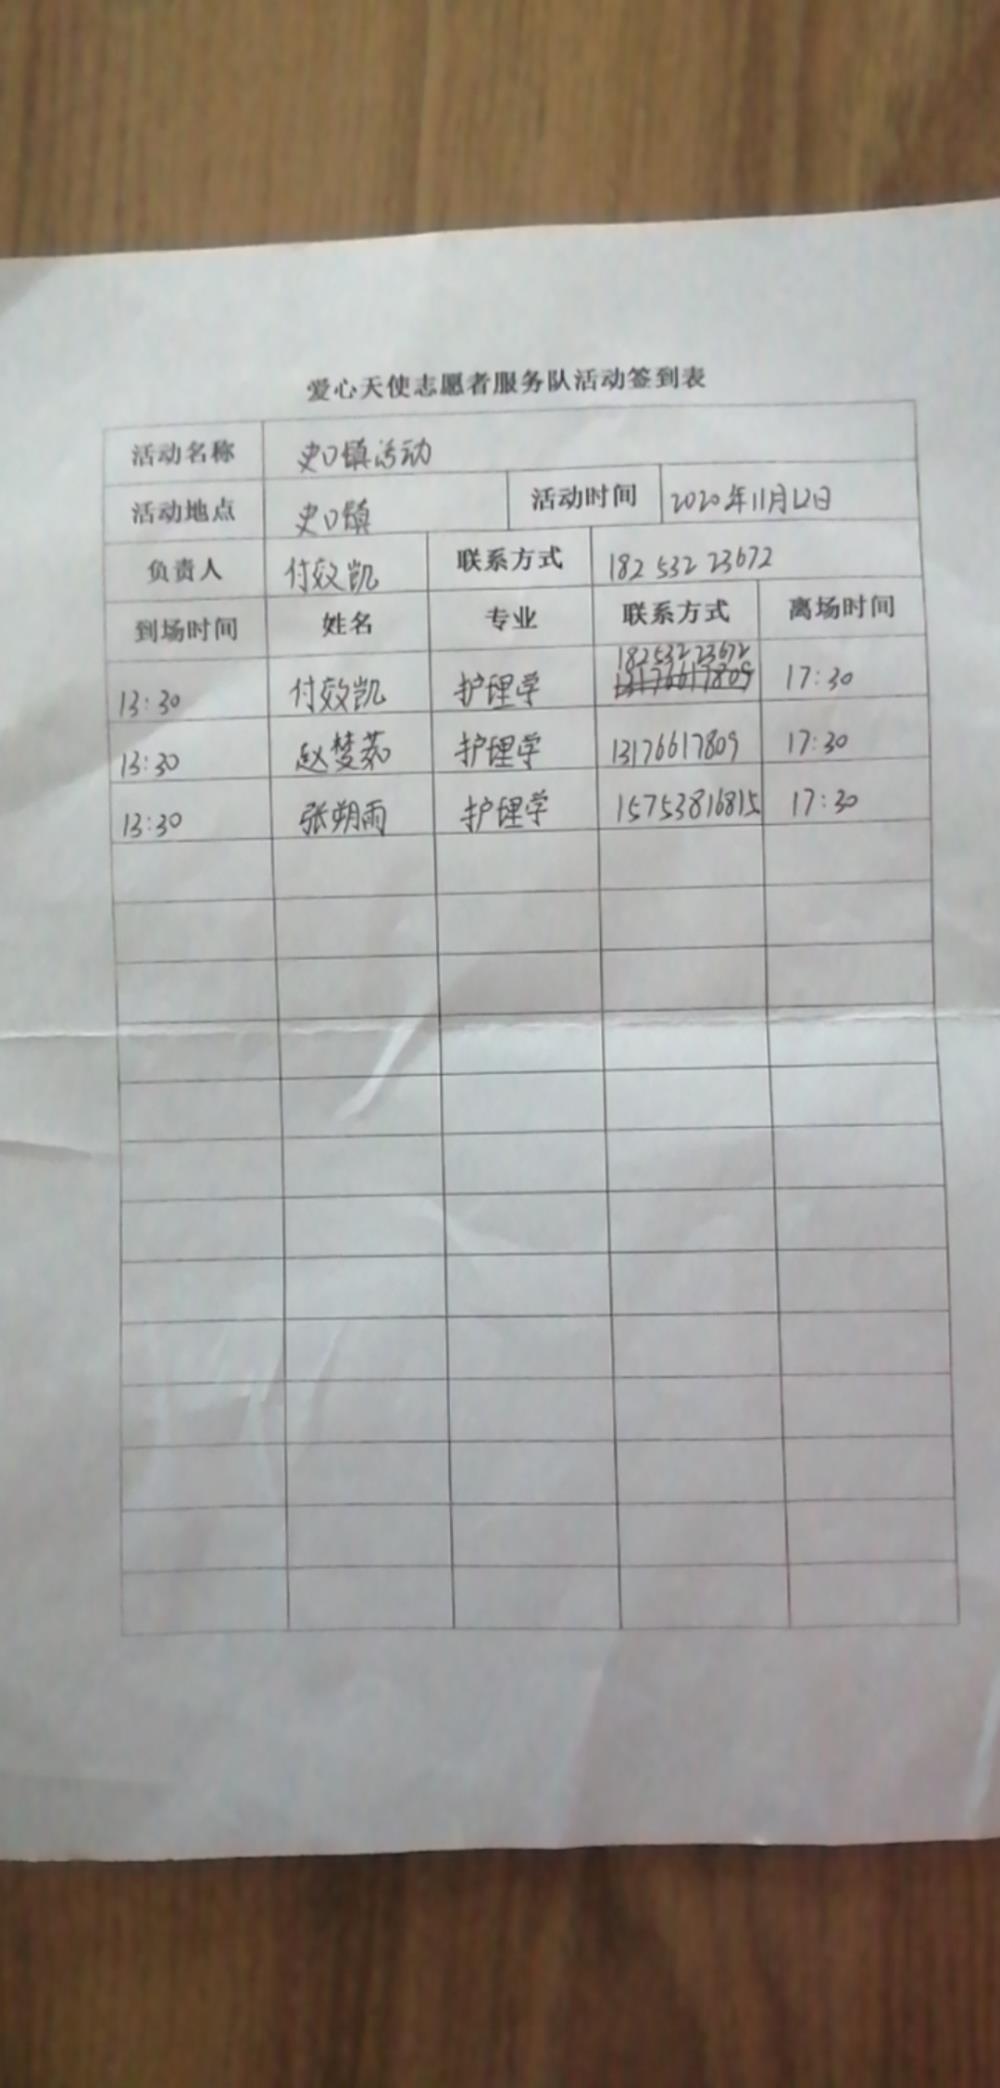 爱心天使志愿者服务队活动签到表
活动名称 史口镇活动
活动地点 史口镇 活动时间 2020年11月12日
负责人 付效凯 联系方式 182 532 23672
到场时间 姓名 专业 联系方式 离场时间
18253223672
13:30 付效凯 护理学 13176617809 17:30
13:30 赵梦茹 护理学 13176617809 17:30
13:30 张朔雨 护理学 15753816815 17:30